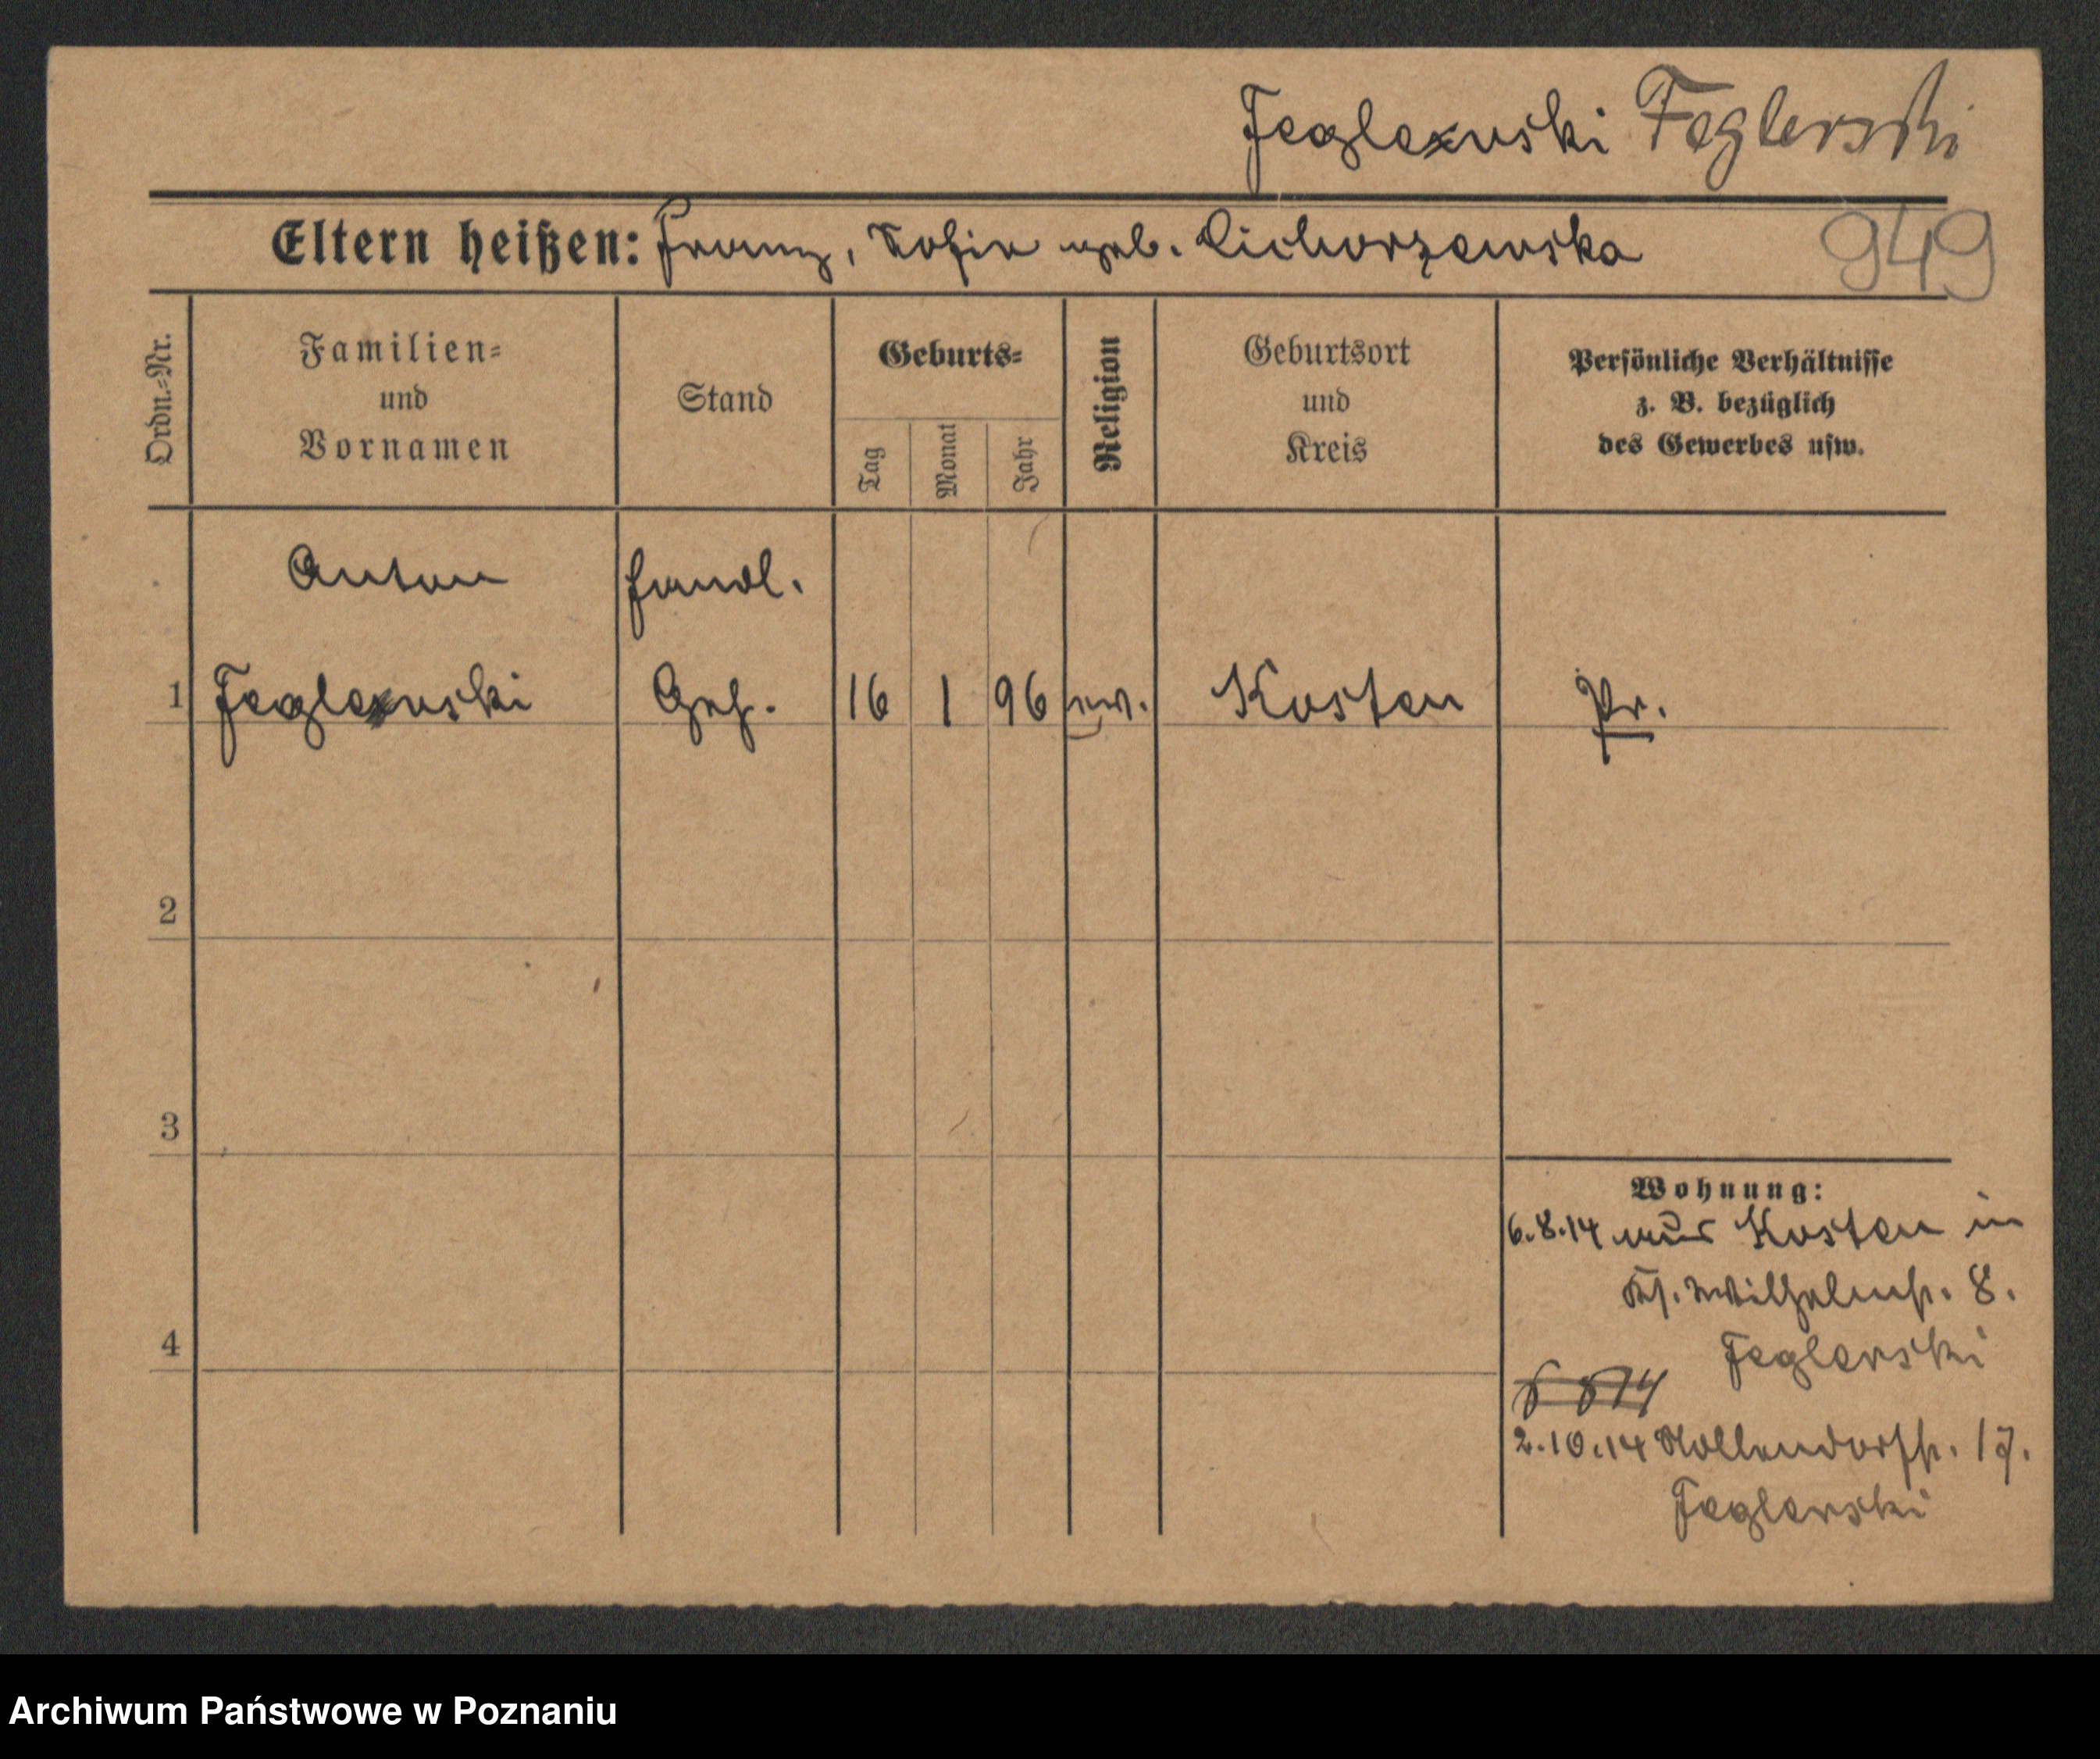 Feglerski Feglerski
Eltern heißen: Franz, Sofie geb. Cichorzewska
949
Ordn.-Nr.
Familien-
und
Vornamen
Stand
Geburts-
Tag
Monat
Jahr
Religion
Geburtsort
und
Kreis
Persönliche Verhältnisse
z. B. bezüglich
des Gewerbes usw.
Anton Handl.
1 Feglerski Geh. 16 1 96 Kosten Pr.
2
3
4
Wohnung:
6.8.14 aus Kosten in
Wilhelmstr. 8.
Feglerski
2.10.14 Nollendorfstr. 17.
Feglerski
Archiwum Państwowe w Poznaniu